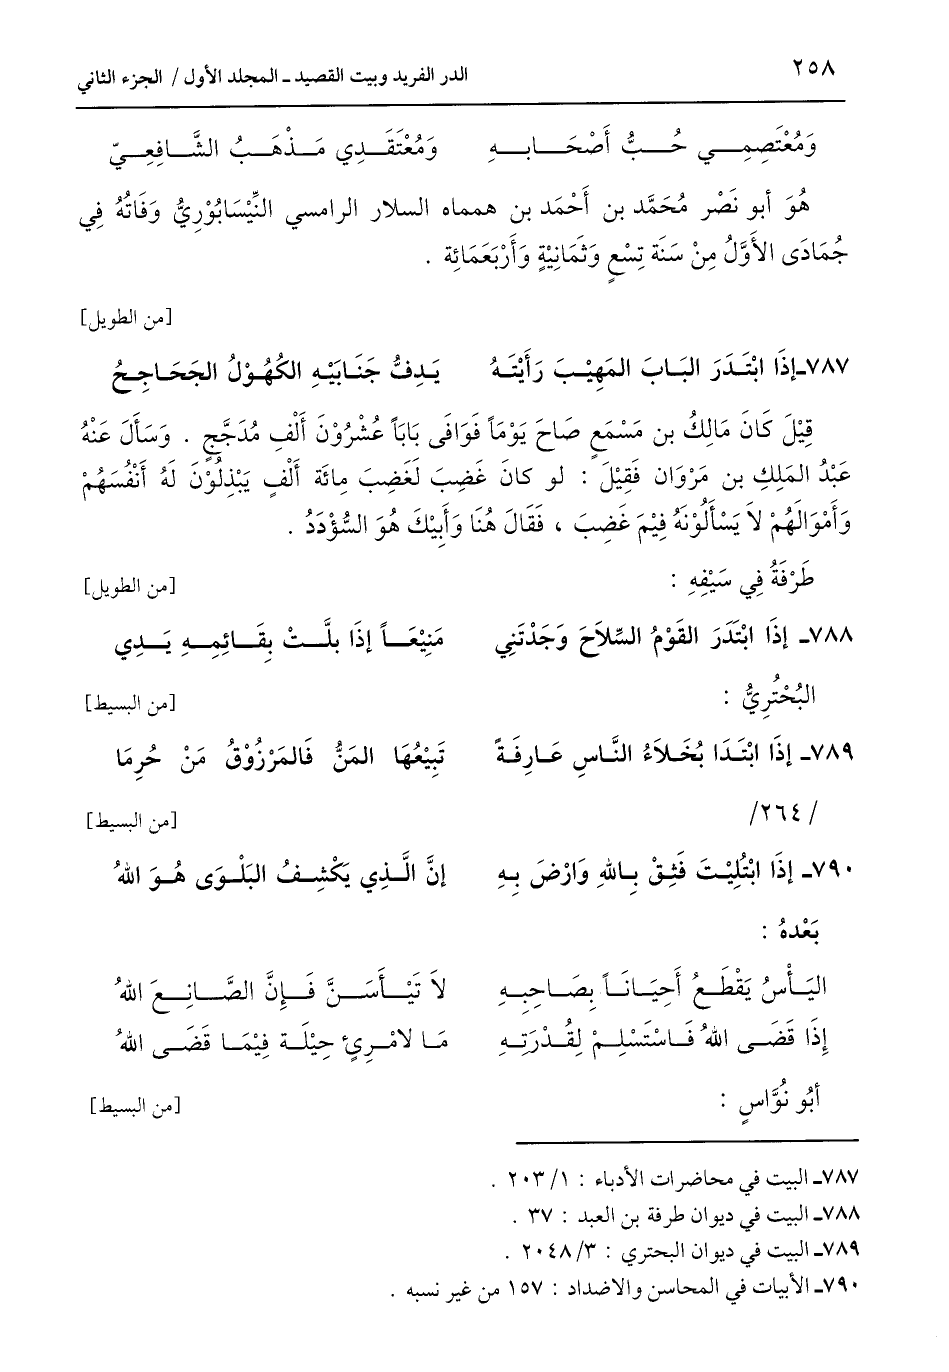 ٢٥٨ الدر الفريد وبيت القصيد ـ المجلد الأول / الجزء الثاني
وَمُعْتَصِمِـــي حُـــبُّ أَصْحَـــابِـــهِ وَمُعْتَقَـــدِي مَـــذْهَـــبُ الشَّـــافِعِـــيّ
هُوَ أبو نَصْرِ مُحَمَّد بن أَحْمَد بن همماه السلار الرامسي النِّيْسَابُوْرِيُّ وَفَاتُهُ فِي
جُمَادَى الأَوَّلُ مِنْ سَنَة تِسْعٍ وَثَمانِيْةٍ وَأَرْبَعَمَائِة .
[من الطويل]
٧٨٧ـ إذَا ابْتَـدَرَ البَـابَ المَهِيْـبَ رَأَيْتَـهُ يَـدِفُّ جَنَـابَيْـهِ الكُهُـوْلُ الجَحَاجِـحُ
قِيْلَ كَانَ مَالِكُ بن مَسْمَعٍ صَاحَ يَوْمَاً فَوَافَى بَابَاً عُشْرُوْنَ أَلْفِ مُدَجَّجٍ . وَسَأَلَ عَنْهُ
عَبْدُ المَلِكِ بن مَرْوَان فَقِيْلَ : لو كَانَ غَضِبَ لَغَضِبَ مِائَة أَلْفٍ يَبْذِلُوْنَ لَهُ أَنْفُسَهُمْ
وَأَمْوَالَهُمْ لاَ يَسْأَلُوْنَهُ فِيْمَ غَضِبَ ، فَقَالَ هُنَا وَأَبِيْكَ هُوَ السُّؤْدَدُ .
طَرْفَةُ فِي سَيْفِهِ : [من الطويل]
٧٨٨ـ إذَا ابْتَدَرَ القَوْمُ السِّلاَحَ وَجَدْتَنِي مَنِيْعَـــاً إذَا بلَّـــتْ بِقَـــائِمِـــهِ يَـــدِي
البُحْتُرِيُّ : [من البسيط]
٧٨٩ـ إذَا ابْتَـدَا بُخَـلاَءُ النَّـاسِ عَـارِفَـةً تَبِيْعُهَا المَنُّ فَالمَرْزُوْقُ مَنْ حُرِمَا
/٢٦٤/ [من البسيط]
٧٩٠ـ إذَا ابْتُلِيْـتَ فَثِـقْ بِـاللهِ وَارْضَ بِـهِ إنَّ الَّـذِي يَكْشِـفُ البَلْـوَى هُـوَ اللهُ
بَعْدهُ :
اليَـأْسُ يَقْطَـعُ أَحِيَـانَـاً بِصَـاحِبِـهِ لاَ تَيْـأَسَـنَّ فَـإنَّ الصَّـانِـعَ اللهُ
إذَا قَضَـى اللهُ فَـاسْتَسْلِـمْ لِقُـدْرَتِـهِ مَـا لامْـرِئٍ حِيْلَـة فِيْمَـا قَضَـى اللهُ
أبُو نُوَّاسٍ : [من البسيط]
٧٨٧ـ البيت في محاضرات الأدباء : ١/ ٢٠٣ .
٧٨٨ـ البيت في ديوان طرفة بن العبد : ٣٧ .
٧٨٩ـ البيت في ديوان البحتري : ٣/ ٢٠٤٨ .
٧٩٠ـ الأبيات في المحاسن والاضداد : ١٥٧ من غير نسبه .